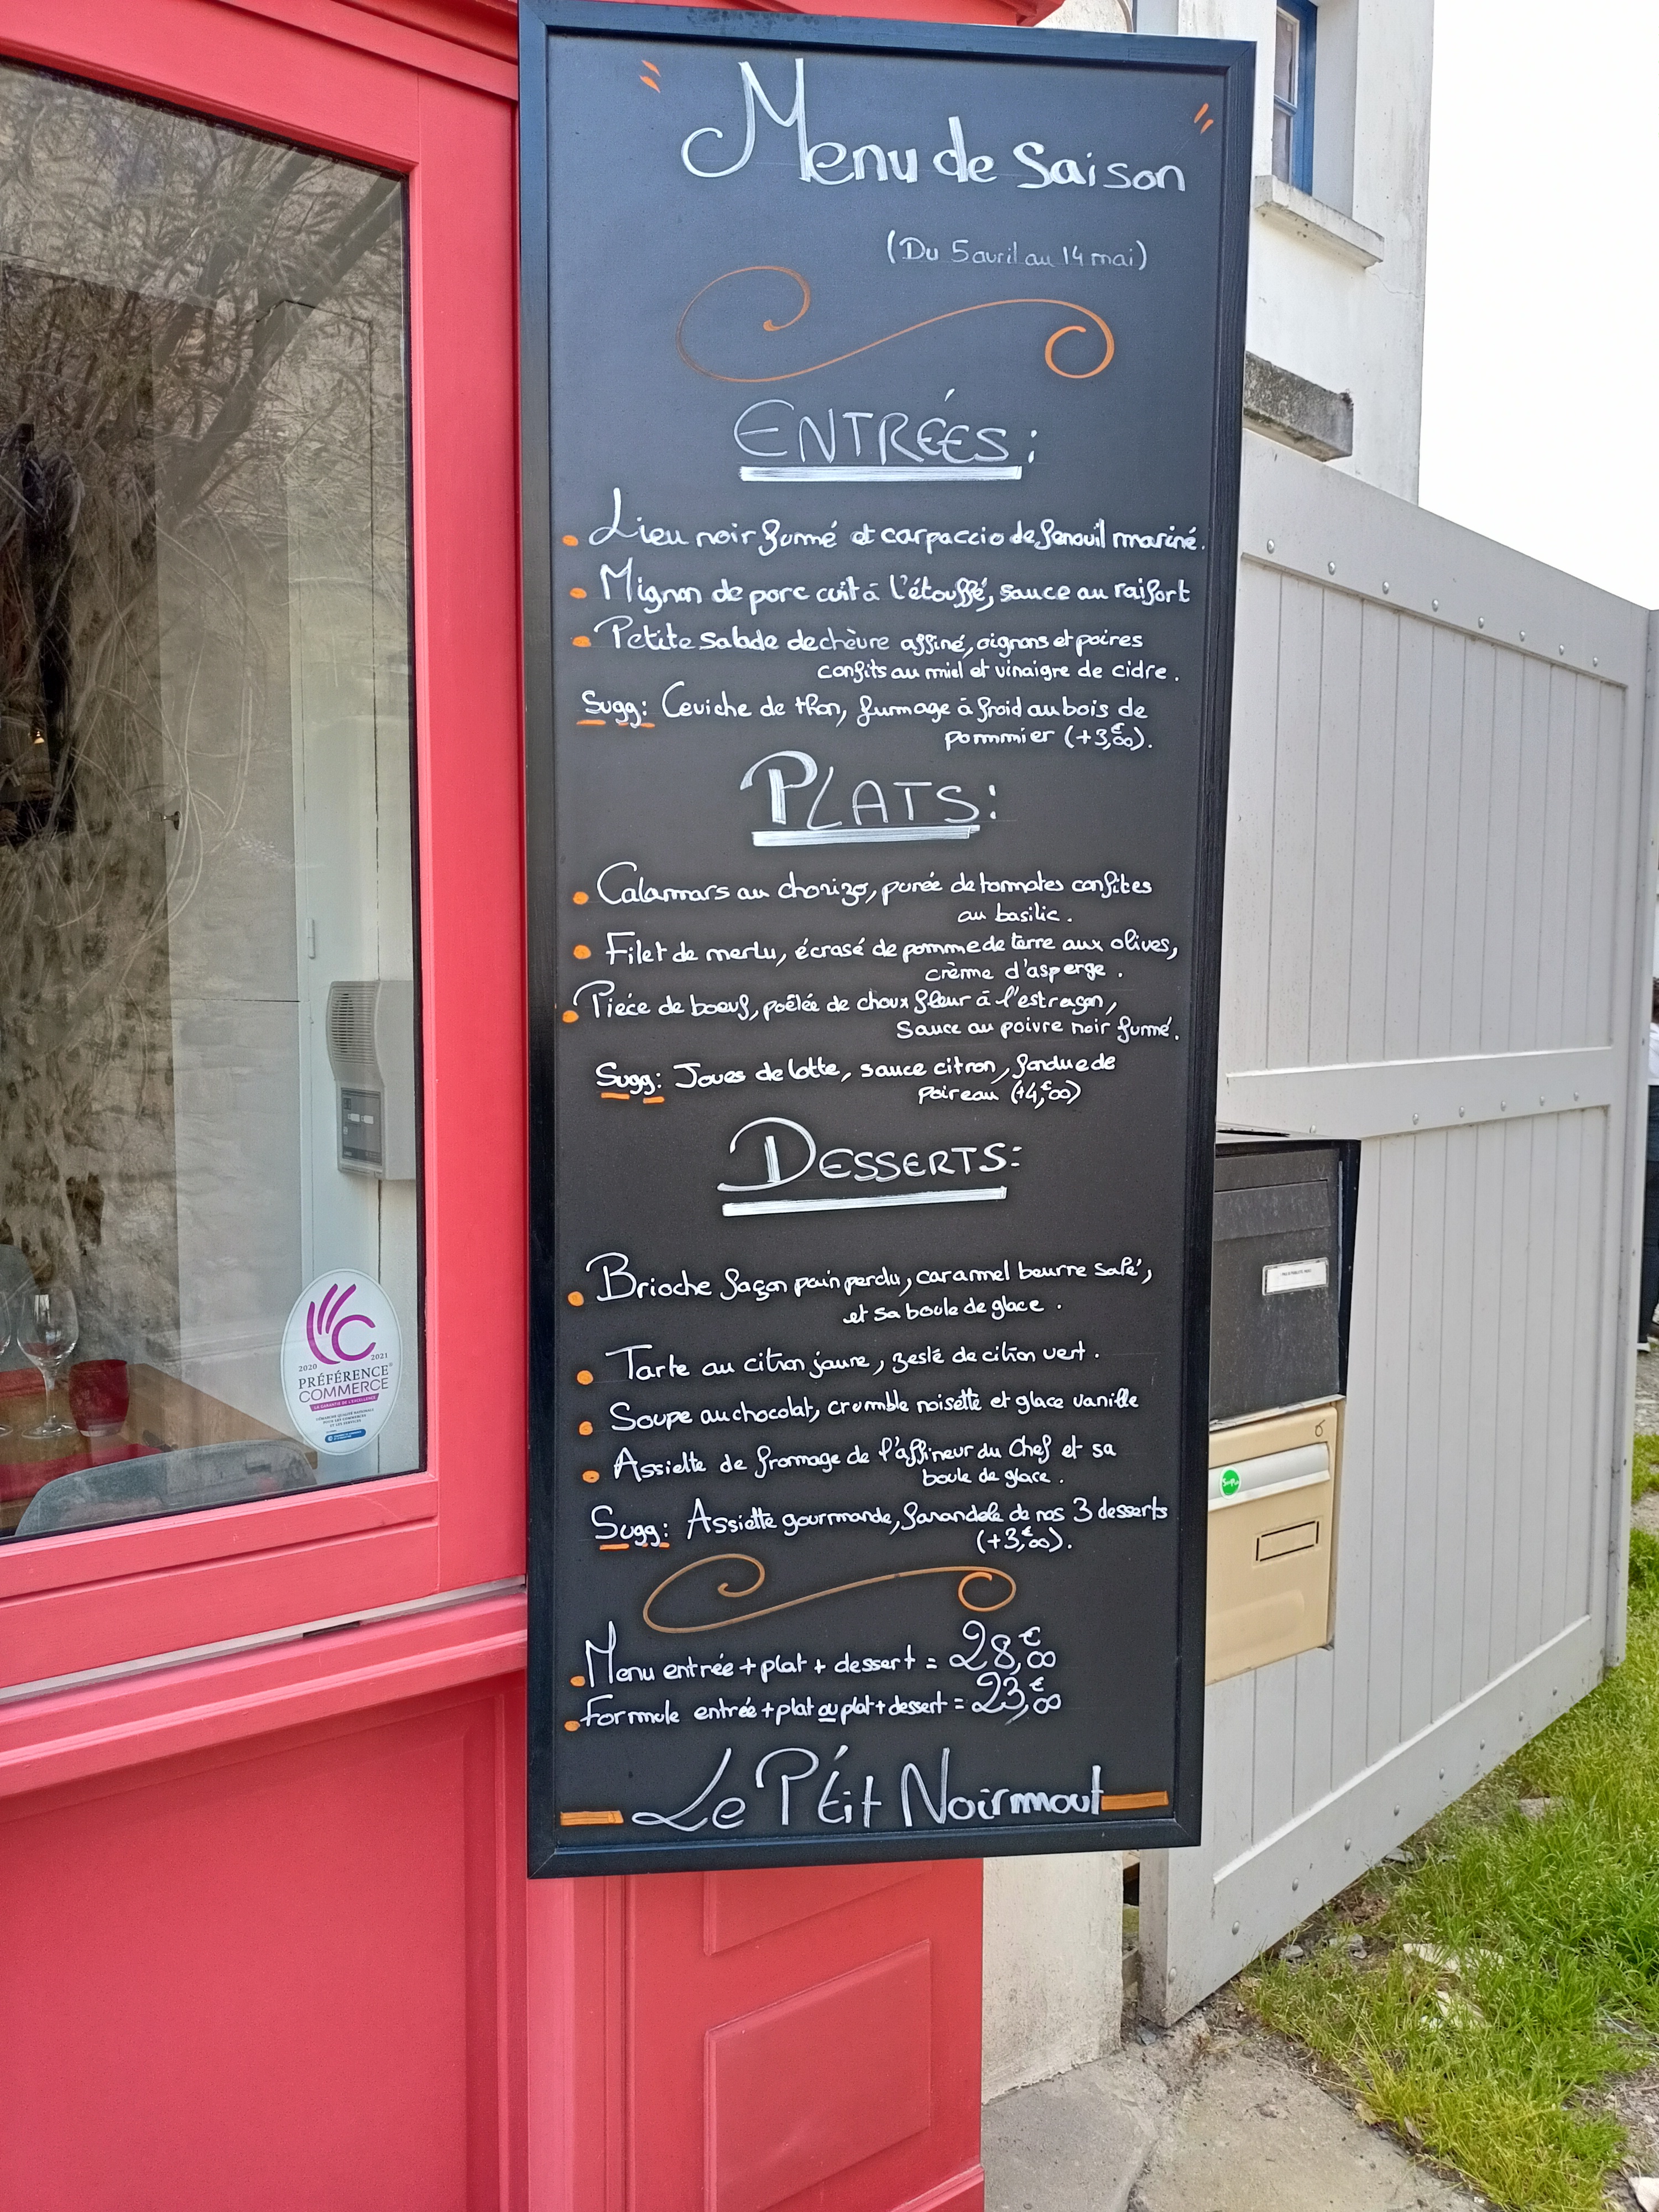 " Menu de Saison "
(Du 5 avril au 14 mai)
ENTRÉES:
Lieu noir fumé et carpaccio de fenouil mariné.
Mignon de porc cuit à l'étouffé, sauce au raifort
Petite salade de chèvre affiné, oignons et poires
confits au miel et vinaigre de cidre.
Sugg: Ceviche de thon, fumage à froid au bois de
pommier (+3,€00).
PLATS:
Calamars au chorizo, purée de tomates confites
au basilic.
Filet de merlu, écrasé de pomme de terre aux olives,
crème d'asperge.
Piéce de boeuf, poêlée de choux fleur à l'estragon,
sauce au poivre noir fumé.
Sugg: Joues de lotte, sauce citron, fondue de
poireau (+4,€00)
DESSERTS:
Brioche façon pain perdu, caramel beurre salé,
et sa boule de glace.
Tarte au citron jaune, zesté de citron vert.
Soupe au chocolat, crumble noisette et glace vanille
Assiette de fromage de l'affineur du Chef et sa
boule de glace.
Sugg: Assiette gourmande, farandole de nos 3 desserts
(+3,€00).
Menu entrée + plat + dessert = 28,€00
Formule entrée + plat ou plat + dessert = 23,€00
Le P'tit Noirmout
2020 2021
PRÉFÉRENCE
COMMERCE
LA GARANTIE DE L'EXCELLENCE
DÉMARCHE QUALITÉ NATIONALE
POUR LES COMMERCES
ET LES SERVICES